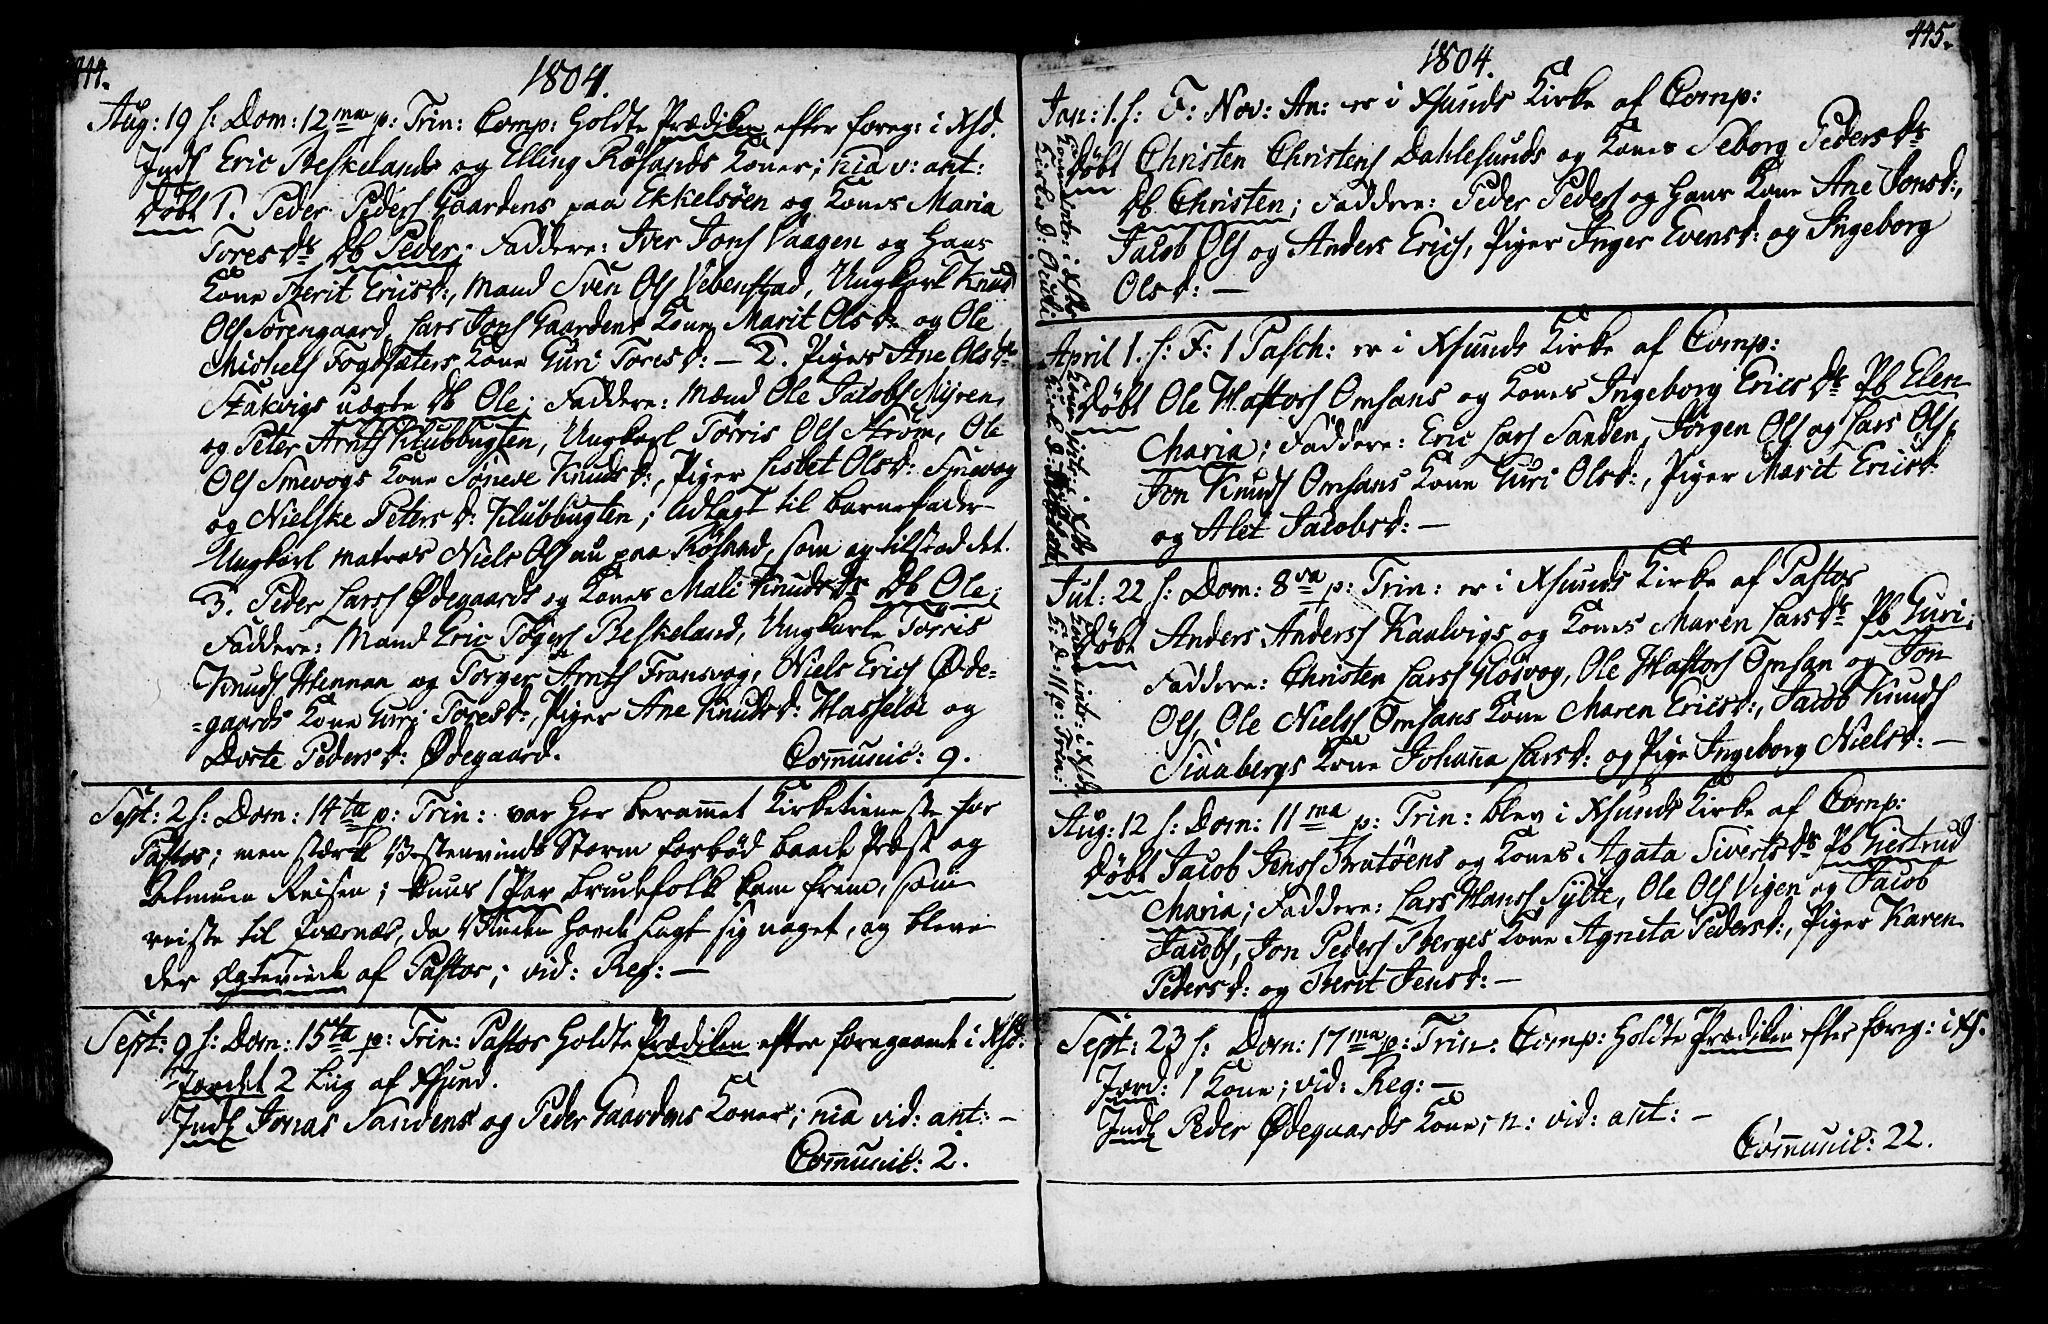 444.
1804.
Aug: 19 s: Dom: 12ma p: Trin: Comp: holdte Prædiken efter foreg: i Xsd.
Indl Eric Beskelands og Elling Røsands Koner; nia v: ant:
Døbt 1. Peder Peders Gaardens paa Ekkelsøen og Kones Maria
Toresdr Db Peder; Faddere: Iver Jons Vaagen og hans
Kone Berit Ericsd:, Mand Sven Ols Vebenstad, Ungkarl Knud
Ols Sørengaard, Lars Jons Gaardens Kone Marit Olsd: og Ole
Michels Fogdsæters Kone Guri Toresd: — 2. Piges Ane Olsdr
Stakvigs uægte Db Ole; Faddere: Mænd Ole Jacobs Myren,
og Peter Arnts Klubbugten, Ungkarl Tørris Ols Strøm, Ole
Ols Smevogs Kone Søneve Knudsd:, Piger Lisbet Olsd: Smevog
og Nielske Petersd: Klubbugten; Udlagt til barnefader
Ungkarl matros Niels Ols nu paa Røsand, som og tilstod det.
3. Peder Larss Ødegaards og Kones Mali Knudsdr Db Ole;
Faddere: Mand Eric Tøgers Beskeland, Ungkarle Tørris
Knuds Hennan og Torger Arnts Fransvog, Niels Erics Øde-
-gaards Kone Guri Toresd:, Piger Ane Knudsd: Hasseløe og
Dorte Pedersd: Ødegaard. Communic: 9.
Sept: 2 s: Dom: 14ta p: Trin: var her berammet Kirketieneste for
Pastor; men stærk Vestenvinds Storm forbød baade Præst og
Almuen Reisen; kuns 1 Par brudefolk kom frem, som
reiste til Qværnæs, da Vinden havde lagt sig noget, og bleve
der Ægteviede af Pastor; vid: Reg: —
Sept: 9 s: Dom: 15ta p: Trin: Pastor holdte Prædiken efter foregaaende i Xsd:
Jordet 2 Liig af Xsund.
Indl Jonas Sandens og Peder Gaardens Koner; nia vid: ant: —
Communic: 2.
445.
1804.
Jan: 1. s: F: Nov: An: er i Xsunds Kirke af Comp:
Døbt Christen Christens Dahlesunds og Kones Seborg Pedersdr
Db Christen; Faddere: Peder Peders og hans Kone Ane Jonsd:,
Jacob Ols og Anders Erics, Piger Inger Evensd: og Ingeborg
Olsd: —
April 1. s: F: 1 Pasch: er i Xsunds Kirke af Comp:
Døbt Ole Hastors Omsans og Kones Ingeborg Ericsdr Pb Elen
Maria; Faddere: Eric Lars Sanden, Jørgen Ols og Lars Ols,
Jon Knuds Omsans Kone Guri Olsd:, Piger Marit Ericsd:
og Alet Jacobsd: —
Jul: 22 s: Dom: 8va p: Trin: er i Xsunds Kirke af Pastor
Døbt Anders Anderss Kaalvigs og Kones Maren Larsdr Pb Guri;
Faddere: Christen Larss Høsvog, Ole Hastors Omsan og Jon
Ols, Ole Nielss Omsans Kone Maren Ericsd:, Jacob Knuds
Skaabergs Kone Johanna Larsd: og Pige Ingeborg Nielsd: —
Aug: 12 s: Dom: 11ma p: Trin: blev i Xsunds Kirke af Comp:
Døbt Jacob Jenss Bratøens og Kones Agata Sivertsdr Pb Giertrud
Maria; Faddere: Lars Hanss Sylte, Ole Ols Vigen og Jacob
Jacobs, Jon Peders Berges Kone Agneta Pedersd:, Piger Karen
Pedersd: og Berit Jensd: —
Sept: 23 s: Dom: 17ma p: Trin: Comp: holdte Prædiken efter foreg: i Xs.
Jord: 1 Kone; vid: Reg: —
Indl Peder Ødegaards Kone; n: vid: ant: —
Communic: 22.